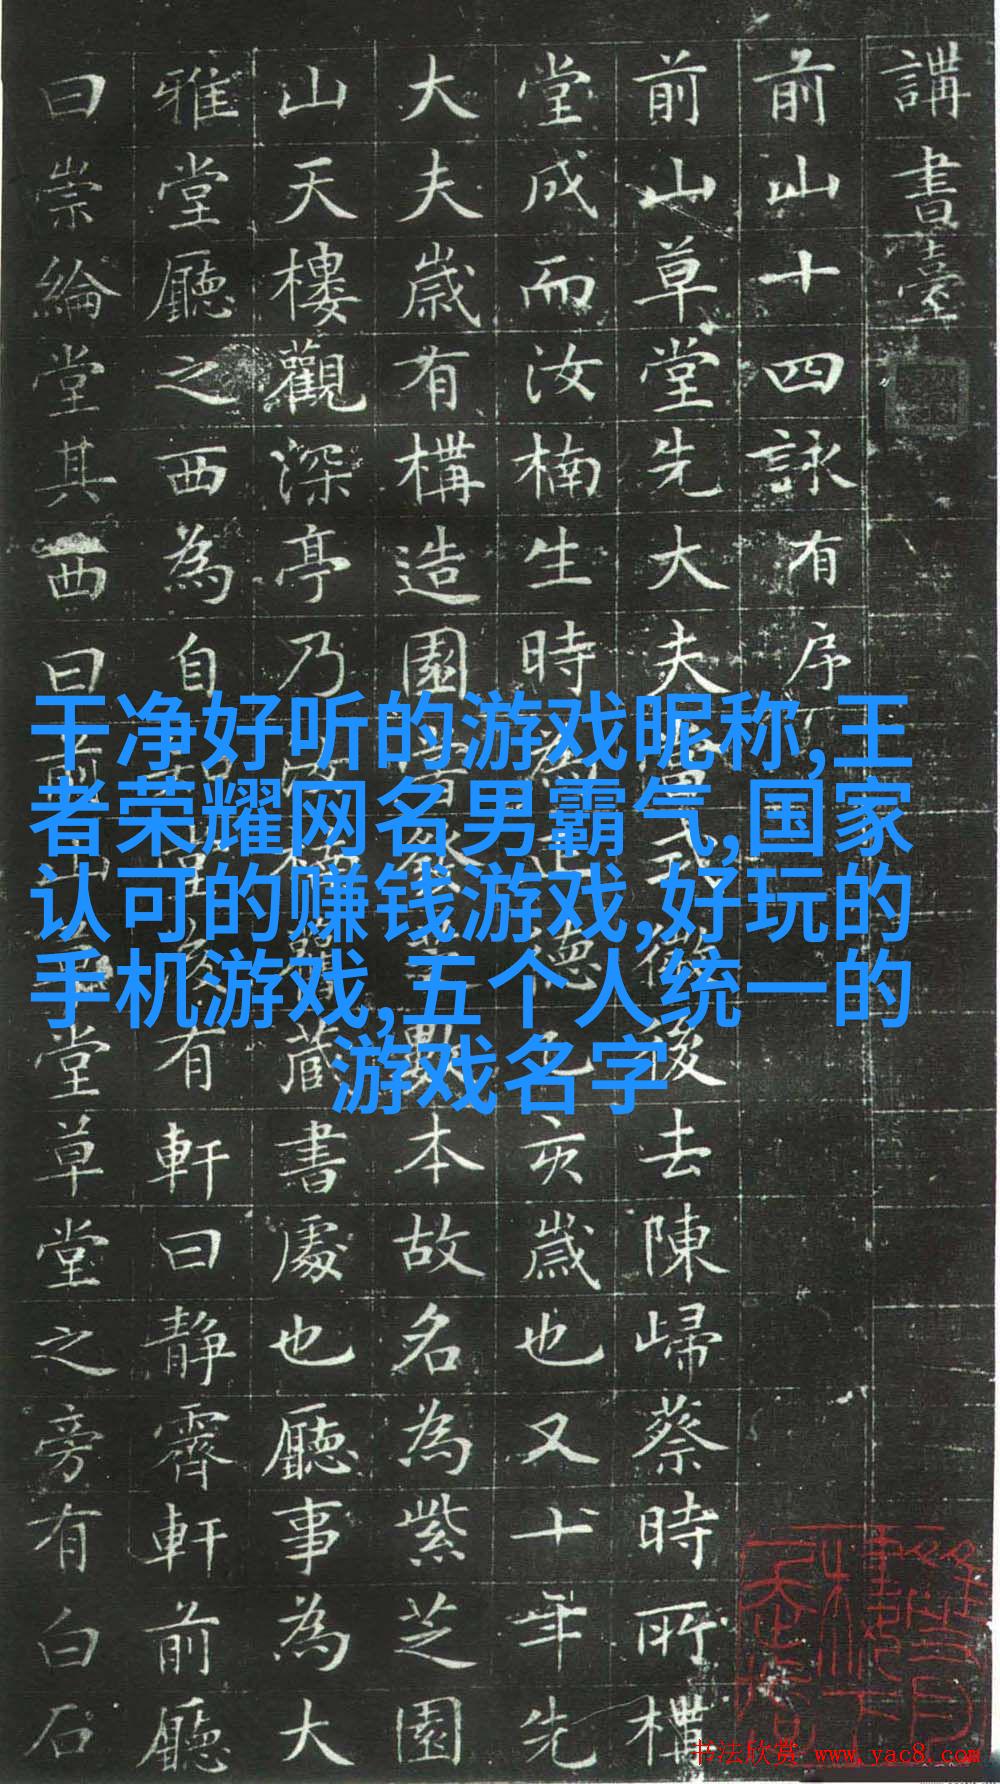 講書臺
前山十四詠有序
前山草堂先大夫後去陳歸蔡時所
堂成而汝楠生時為正德亥歲也又十年先
大夫歲有構造園本故名為紫芝園
山天樓觀深亭乃藏書處也廳事為大
雅堂廳之西為自有軒曰靜霽軒前廳
曰崇綸堂其西曰前山堂草堂之旁有白石
干净好听的游戏昵称,王
者荣耀网名男霸气,国家
认可的赚钱游戏,好玩的
手机游戏,五个人统一的
游戏名字
书法欣赏 www.yac8.com